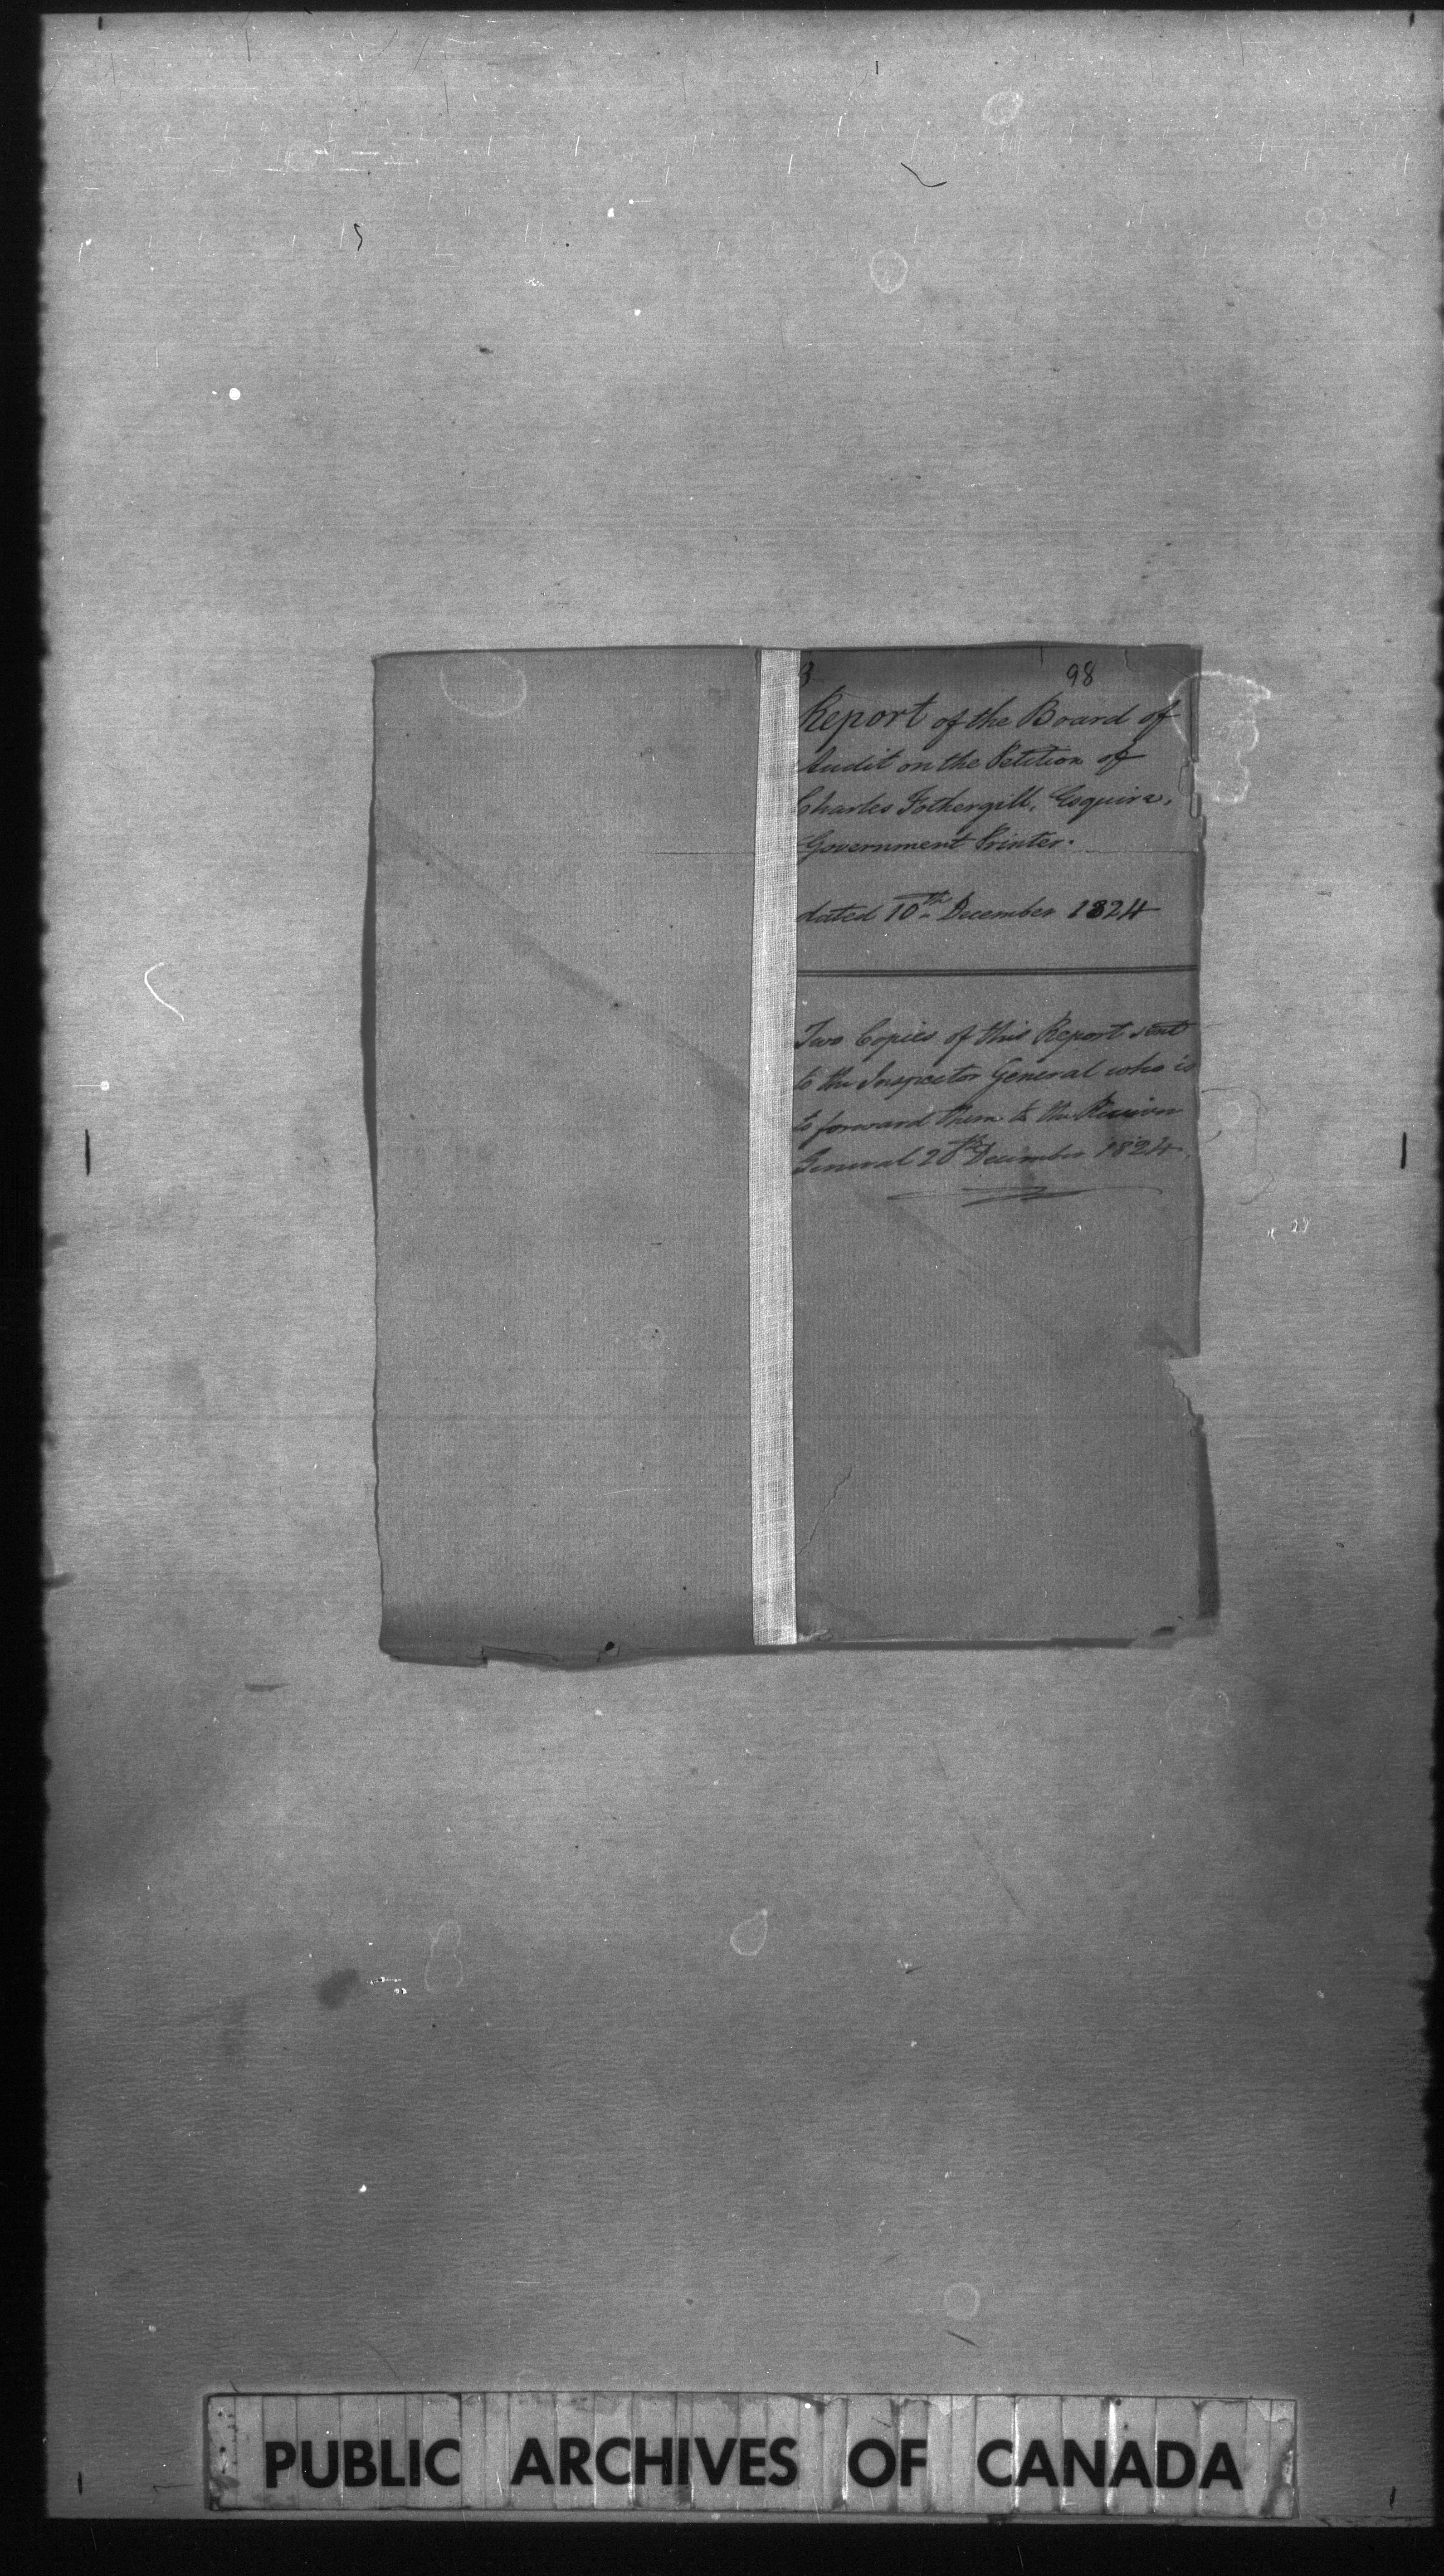 98
Report of the Board of
Audit on the Petition of
Charles Fothergill, Esquire,
Government Printer.
dated 10th December 1824
Two Copies of this Report sent
to the Inspector General who is
to forward them to the Receiver
General 20th December 1824.
PUBLIC ARCHIVES OF CANADA